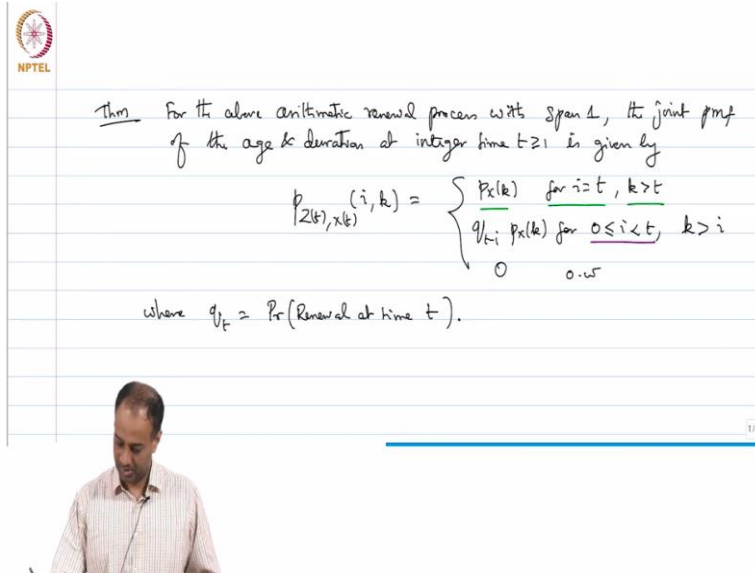 NPTEL
Thm For the above arithmetic renewal process with span 1, the joint pmf
of the age & duration at integer time t≥1 is given by
p_{Z(t),X(t)}(i,k) = { p_X(k) for i=t, k>t
q_{t-i} p_X(k) for 0≤i<t, k>i
0 o.w
where q_t = Pr(Renewal at time t).